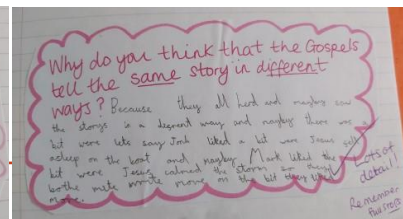 Why do you think that the Gospels
tell the same story in different
ways? Because they all herd and maybe saw
the storys in a and maybe there was a
bit were lets say Jonh liked a bit were Jesus fell
asleep on the boat and maybe Mark liked the
bit were Jesus calmed the storm so they
bothe write more on the bit they like
more.
Lots of
detail!
Remember
full stops